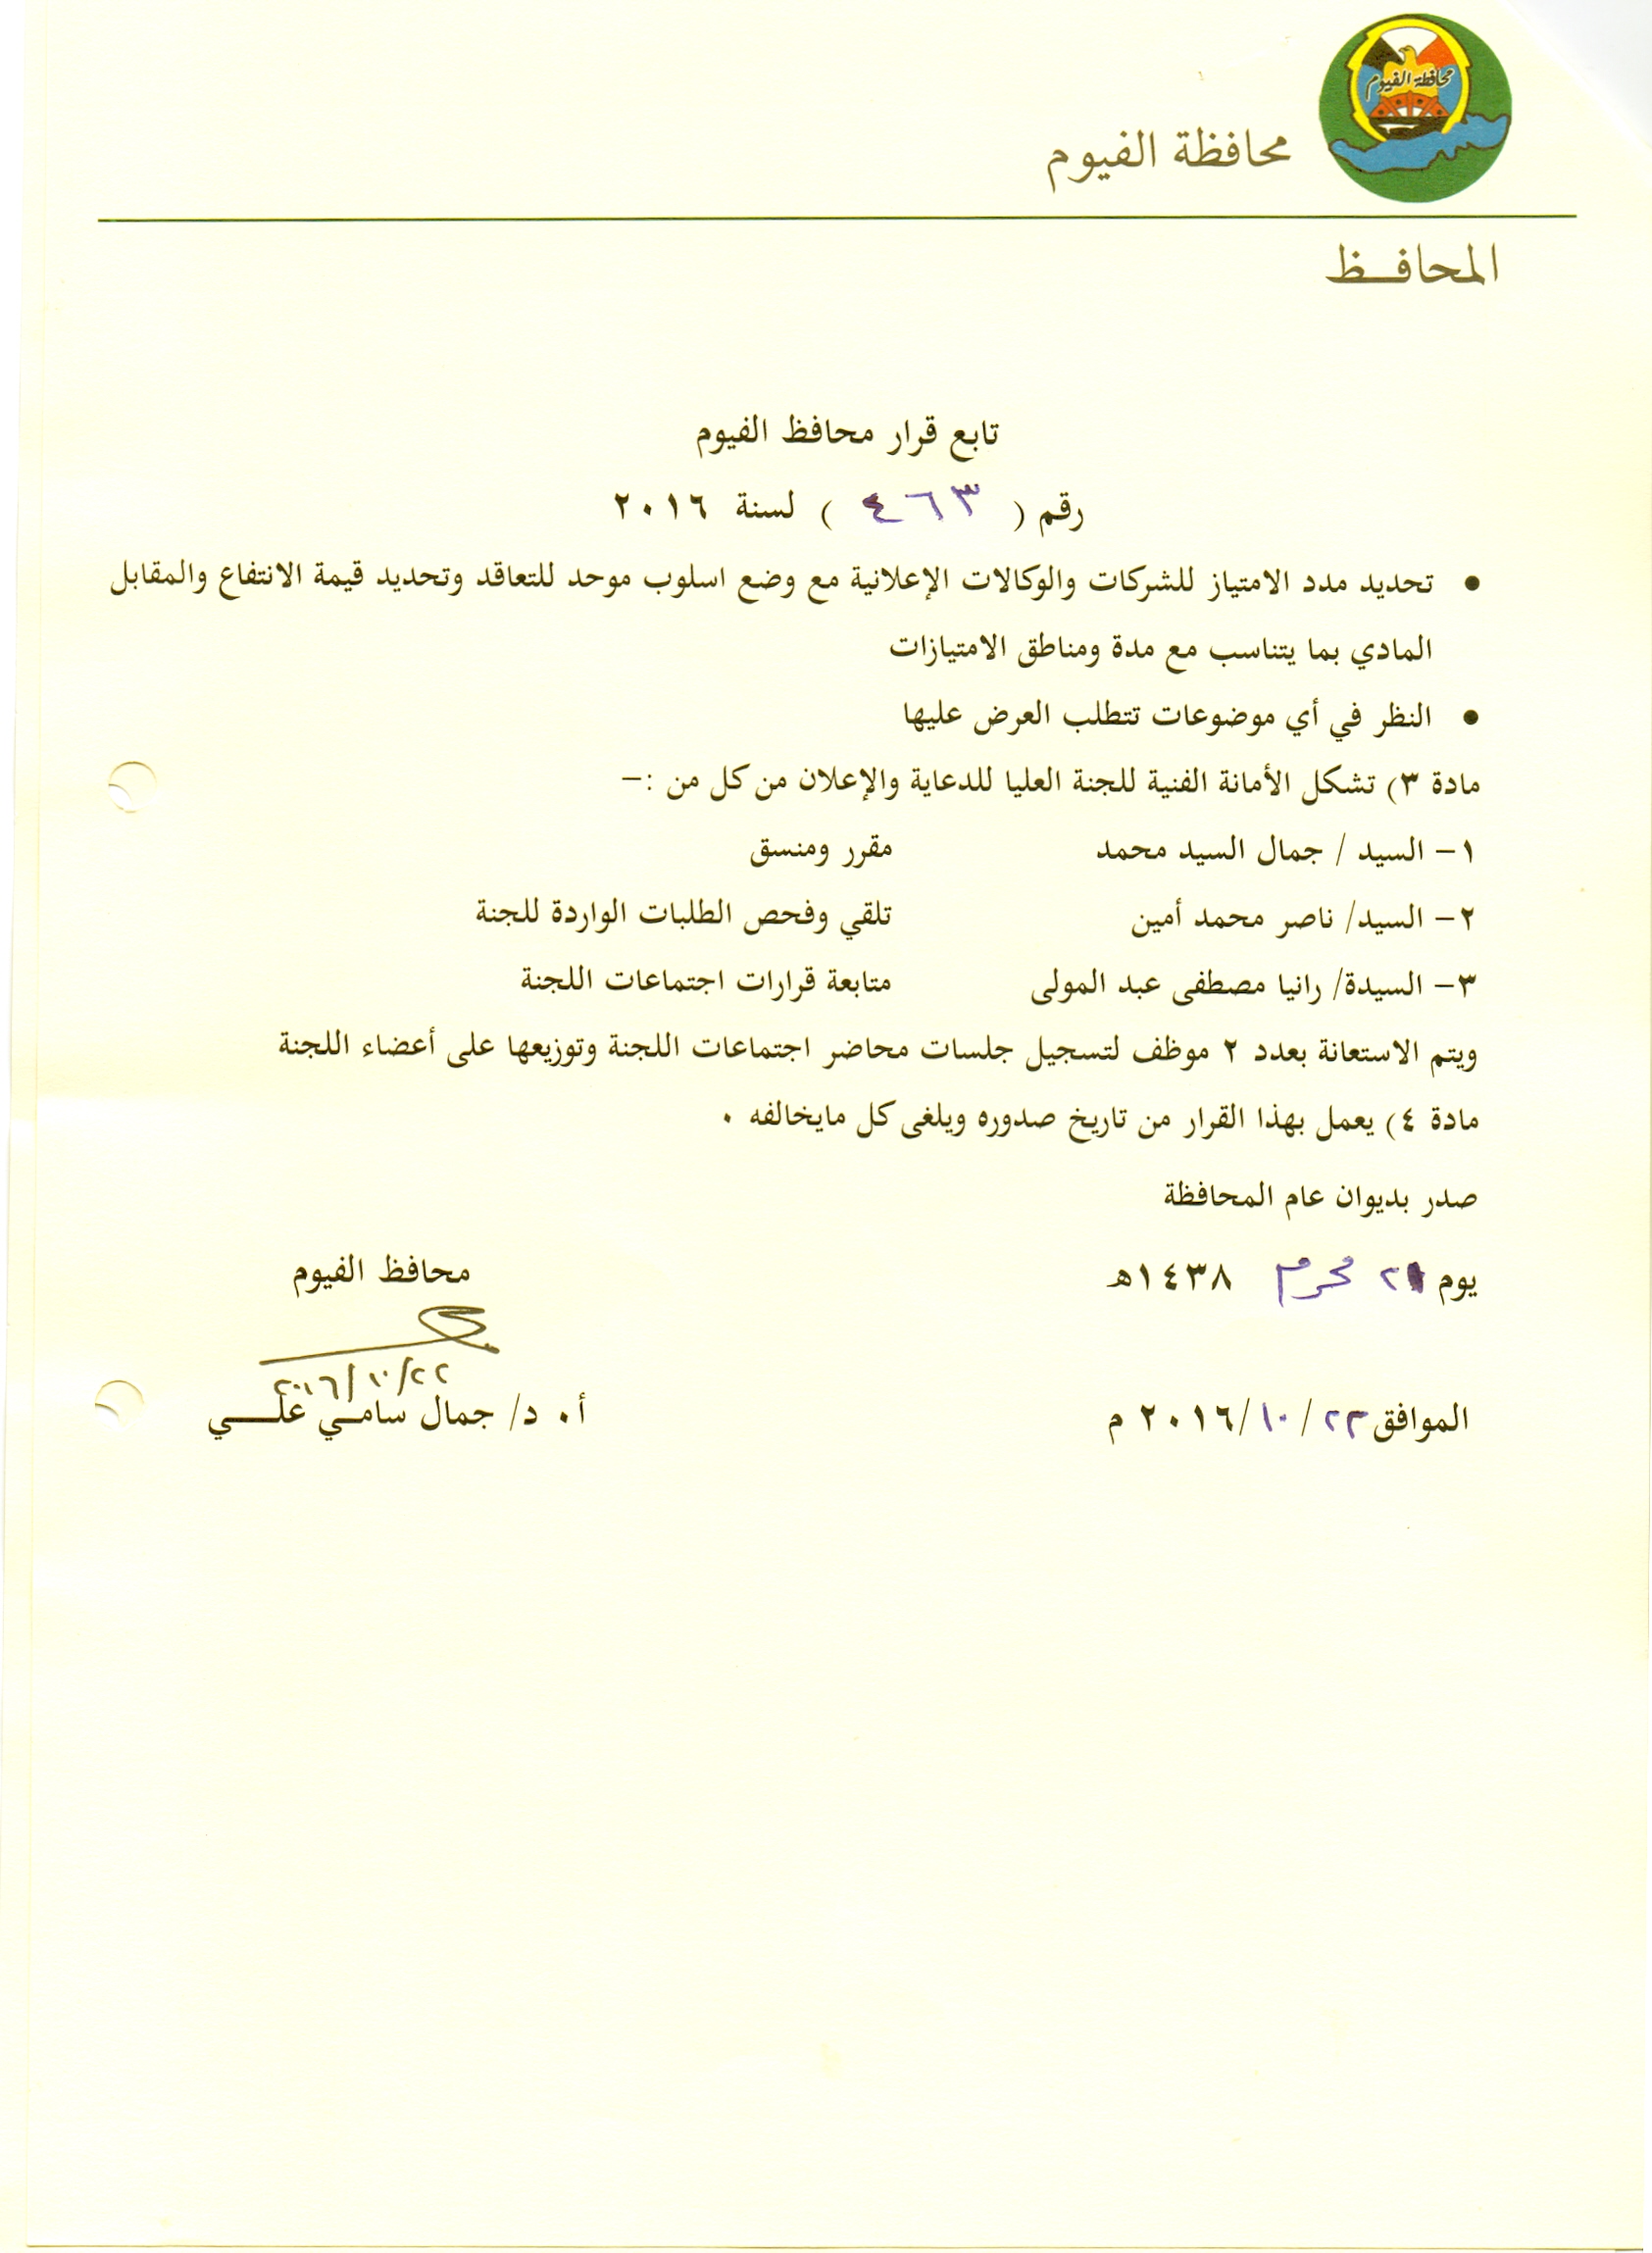 محافظة الفيوم
محافظة الفيوم
المحافــظ
تابع قرار محافظ الفيوم
رقم ( ٤٦٣ ) لسنة ٢٠١٦
• تحديد مدد الامتياز للشركات والوكالات الإعلانية مع وضع اسلوب موحد للتعاقد وتحديد قيمة الانتفاع والمقابل
المادي بما يتناسب مع مدة ومناطق الامتيازات
• النظر في أي موضوعات تتطلب العرض عليها
مادة ٣) تشكل الأمانة الفنية للجنة العليا للدعاية والإعلان من كل من :–
١– السيد / جمال السيد محمد مقرر ومنسق
٢– السيد/ ناصر محمد أمين تلقي وفحص الطلبات الواردة للجنة
٣– السيدة/ رانيا مصطفى عبد المولى متابعة قرارات اجتماعات اللجنة
ويتم الاستعانة بعدد ٢ موظف لتسجيل جلسات محاضر اجتماعات اللجنة وتوزيعها على أعضاء اللجنة
مادة ٤) يعمل بهذا القرار من تاريخ صدوره ويلغى كل مايخالفه ٠
صدر بديوان عام المحافظة
يوم ٢١ محرم ١٤٣٨هـ
محافظ الفيوم
٢٠١٦/١٠/٢٢
الموافق ٢٢/١٠/٢٠١٦ م
أ٠ د/ جمال سامــي علــــي